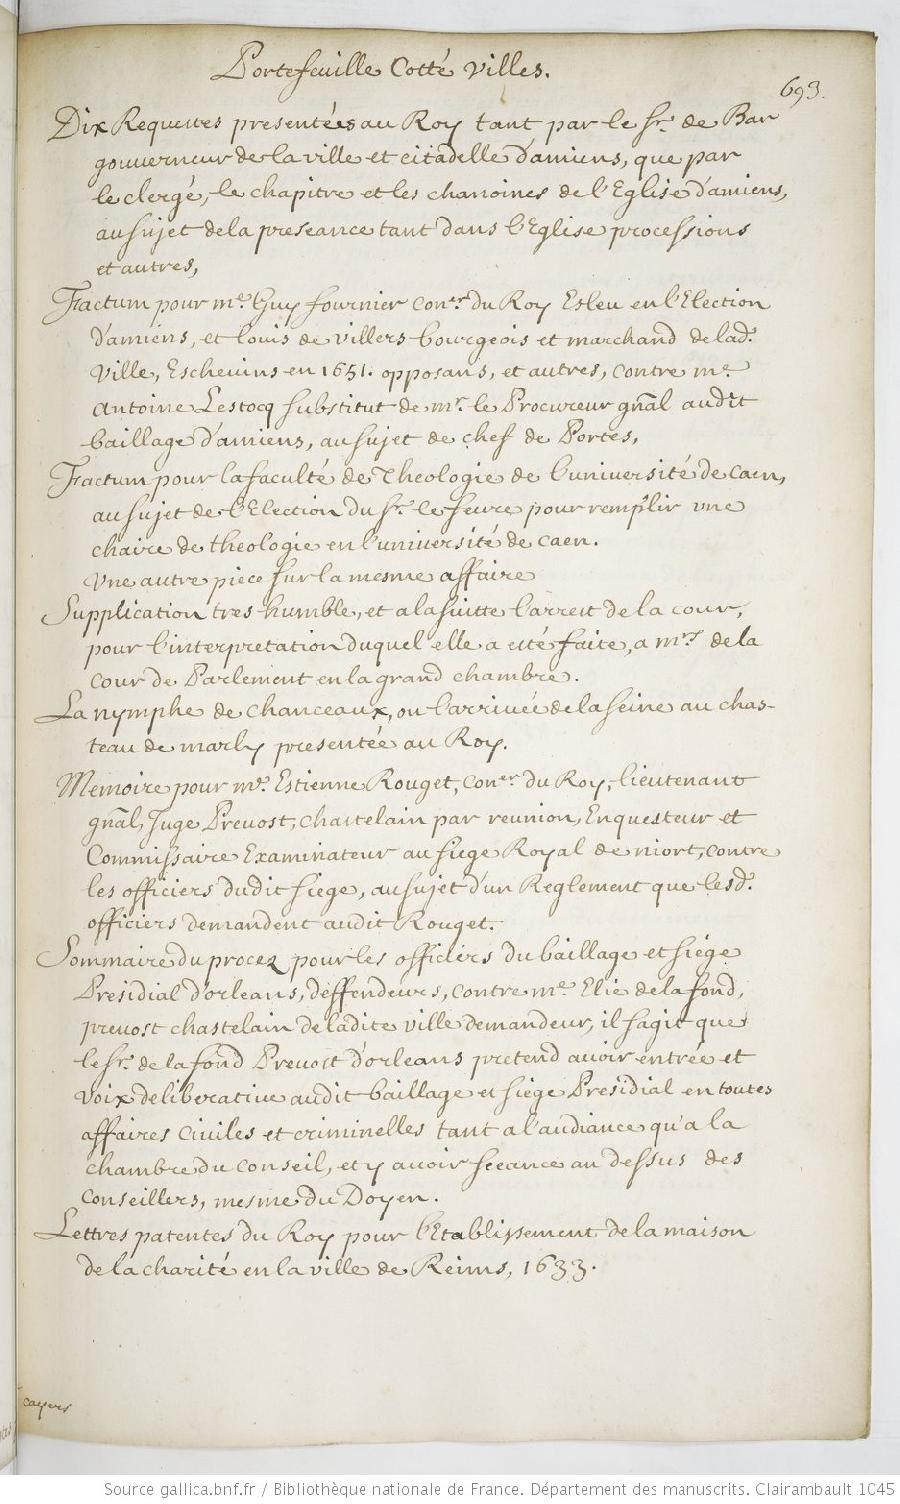 Portefeuille Cotté Villes.
693.
Dix Requestes presentées au Roy tant par le Sr. de Bar
gouverneur de la ville et citadelle d'amiens, que par
le clergé, le chapitre et les chanoines de l'Eglise d'amiens,
au sujet de la preseance tant dans l'Eglise processions
et autres,
Factum pour me. Guy fournier Coner. du Roy Esleu en l'Election
d'amiens, et louis de villers bourgeois et marchand de lad.
Ville, Eschevins en 1651. opposans, et autres, contre me.
Antoine Lestocq substitut de mr. le Procureur gñal audit
baillage d'amiens, au sujet de chef de Portes,
Factum pour la faculté de Theologie de l'université de Caen,
au sujet de l'Election du Sr. le fevre pour remplir une
chaire de theologie en l'université de Caen.
Une autre piece sur la mesme affaire
Supplication tres humble, et a la suitte l'arrest de la cour,
pour l'interpretation duquel elle a esté faite, a mrs. de la
cour de Parlement en la grand chambre.
La nymphe de Chanceaux, ou l'arrivée de la Seine au chas-
teau de marly presentée au Roy.
Memoire pour me. Estienne Rouget, Coner. du Roy, lieutenant
gñal, Juge Prevost, chastelain par reunion, Enquesteur et
Commissaire Examinateur au siege Royal de niort, contre
les officiers dudit siege, au sujet d'un Reglement que lesd.
officiers demandent audit Rouget.
Sommaire du procez pour les officiers du baillage et siége
Presidial d'orleans, deffendeurs, contre me. Elie de la fond,
prevost chastelain de ladite ville demandeur, il s'agit que
le Sr. de la fond Prevost d'orleans pretend avoir entrée et
voix deliberative audit baillage et siége Presidial en toutes
affaires civiles et criminelles tant a l'audiance qu'a la
chambre du conseil, et y avoir seeance au dessus des
Conseillers, mesme du Doyen.
Lettres patentes du Roy pour l'Etablissement de la maison
de la charité en la ville de Reims, 1633.
cayers
Source gallica.bnf.fr / Bibliothèque nationale de France. Département des manuscrits. Clairambault 1045